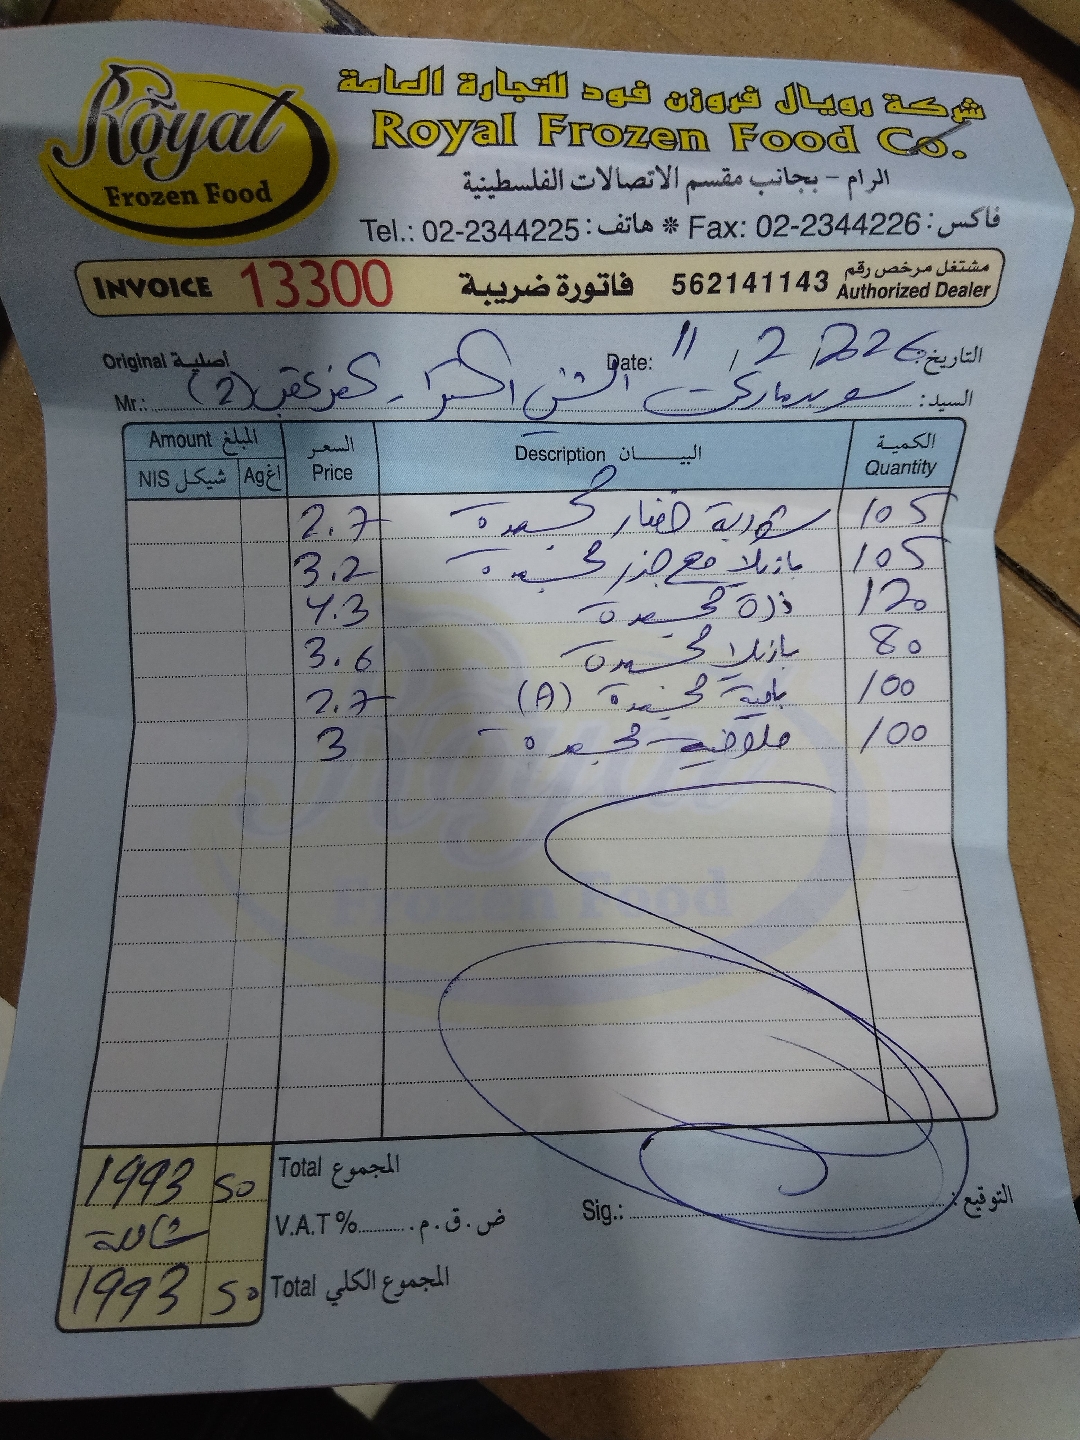 Royal
Frozen Food
شركة رويال فروزن فود للتجارة العامة
Royal Frozen Food Co.
الرام - بجانب مقسم الاتصالات الفلسطينية
Tel.: 02-2344225 هاتف: * Fax: 02-2344226 فاكس:
INVOICE 13300 فاتورة ضريبة 562141143 مشتغل مرخص رقم Authorized Dealer
Original أصلية Date: 11 / 2 / 2026 التاريخ:
Mr.: السيد: سوبرماركت (2)
Amount المبلغ السعر Price البيـــان Description الكمية Quantity
NIS شيكل Ag اغ
105 خضار مجمدة 2.7
105 بازيلا مع جزر مجمدة 3.2
120 ذرة مجمدة 4.3
80 بازيلا مجمدة 3.6
100 بامية مجمدة (A) 2.7
100 ملوخية مجمدة 3
Royal
Frozen Food
1993 50 Total المجموع
شاملة V.A.T % ض.ق.م. Sig.: التوقيع:
1993 50 Total المجموع الكلي